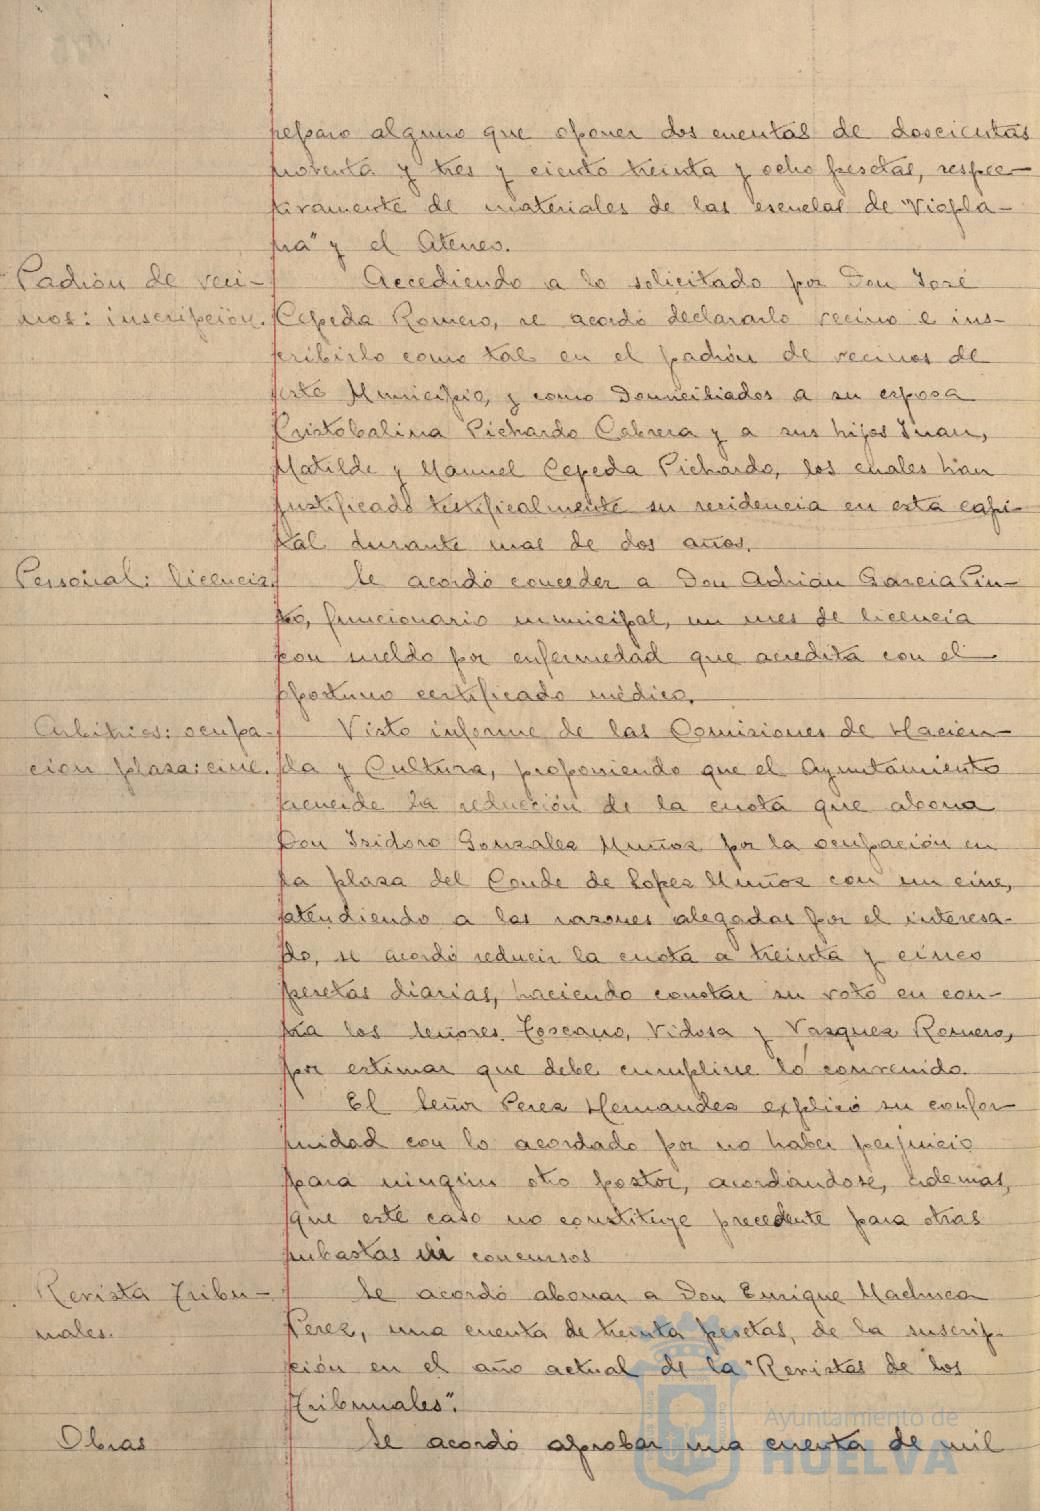 reparo alguno que oponer dos cuentas de doscientas
noventa y tres y ciento treinta y ocho pesetas, respec-
tivamente de materiales de las escuelas de "Viapla-
na" y el Ateneo.
Padrón de veci-
nos: inscripción.
Accediendo a lo solicitado por Don José
Cepeda Romero, se acordó declararlo vecino e ins-
cribirlo como tal en el padrón de vecinos de
este Municipio, y como Domiciliados a su esposa
Cristobalina Pichardo Cabrera y a sus hijos Juan,
Matilde y Manuel Cepeda Pichardo, los cuales han
justificado testificalmente su residencia en esta capi-
tal durante mas de dos años.
Personal: licencia.
Se acordó conceder a Don Adrián Garcia Pin-
to, funcionario municipal, un mes de licencia
con sueldo por enfermedad que acredita con el
oportuno certificado médico.
Arbitrios: ocupa-
cion plaza: cine.
Visto informe de las Comisiones de Hacien-
da y Cultura, proponiendo que el Ayuntamiento
acuerde la reducción de la cuota que abona
Don Isidoro Gonzalez Muñoz por la ocupación en
la plaza del Conde de Lopez Muñoz con un cine,
atendiendo a las razones alegadas por el interesa-
do, se acordó reducir la cuota a treinta y cinco
pesetas diarias, haciendo constar su voto en con-
tra los señores Toscano, Vidosa y Vazquez Romero,
por estimar que debe cumplirse lo convenido.
El Señor Perez Hernandez explicó su confor
midad con lo acordado por no haber perjuicio
para ningún otro postor, acordándose, ademas,
que este caso no constituye precedente para otras
subastas ni concursos
Revista Tribu-
nales.
Se acordó abonar a Don Enrique Machuca
Perez, una cuenta de treinta pesetas, de la suscrip-
ción en el año actual de la "Revistas de los
Tribunales".
Obras
Se acordó aprobar una cuenta de mil
Ayuntamiento de
HUELVA